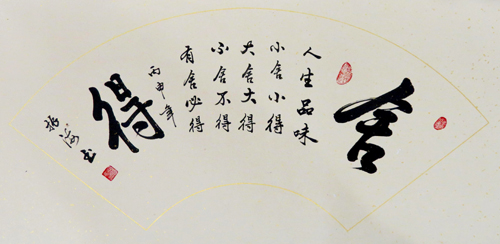 舍
人生品味
小舍小得
大舍大得
不舍不得
有舍必得
丙申年
得
书